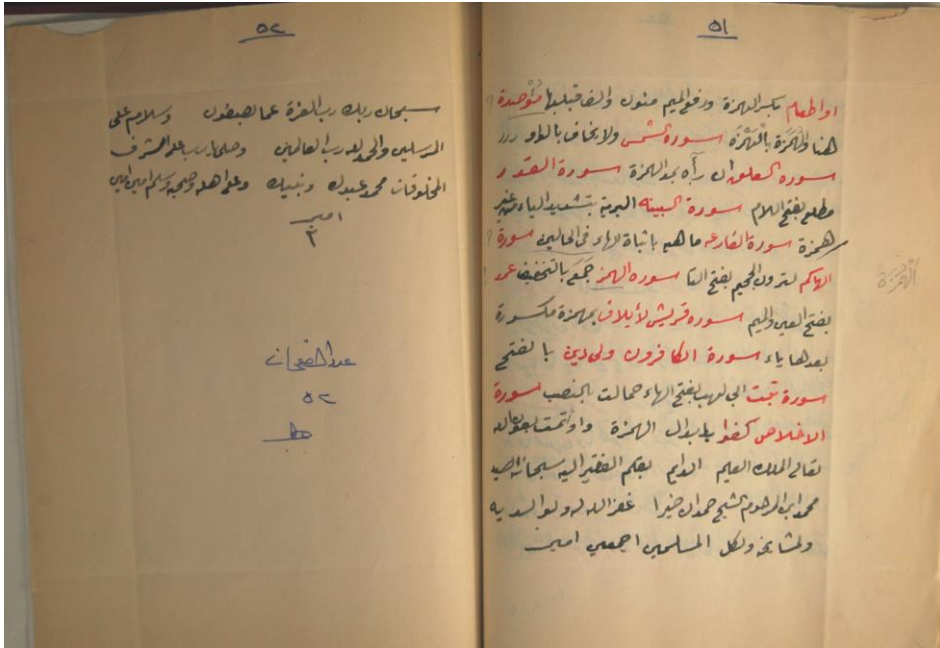 ٥١
او اطعام بكسر الهمزة ورفع الميم منون والف قبلها مؤصدة
هنا والهمزة بالهمزة سورة الشمس ولا يخاف بالواو
سورة العلق ان رآه بمد الهمزة سورة القدر
مطلع بفتح اللام سورة البينه البرية بتشديد الياء من غير
همزة سورة القارعه ما هيه باثباة الهاء فى الحالين سورة
الهاكم لترون الجحيم بفتح التا سوره الهمز جَمَعَ بالتخفيف عمد
بفتح العين والميم سوره قريش لأيلاف بهمزة مكسورة
بعدها ياء سورة الكافرون ولى دين بالفتح
سورة تبت ابى لهب بفتح الهاء حمالت بالنصب سورة
الاخلاص كفوا بابدال الهمزة واوا تمت بعون الله
تعالى الملك العليم الدايم بقلم الفقير اليه سبحانه
محمد ابن المرحوم الشيخ حمدان خيرا غفر الله له ولوالديه
ولمشايخه ولكل المسلمين اجمعين امين
الهمزة
٥٢
سبحان ربك رب العزة عما يصفون وسلام على
المرسلين والحمد لله رب العالمين وصلى يارب على اشرف
المخلوقات محمد عبدك ونبيك وعلى اهله وصحبه وسلم امين امين
امين
٣
عدد الصفحات
٥٢